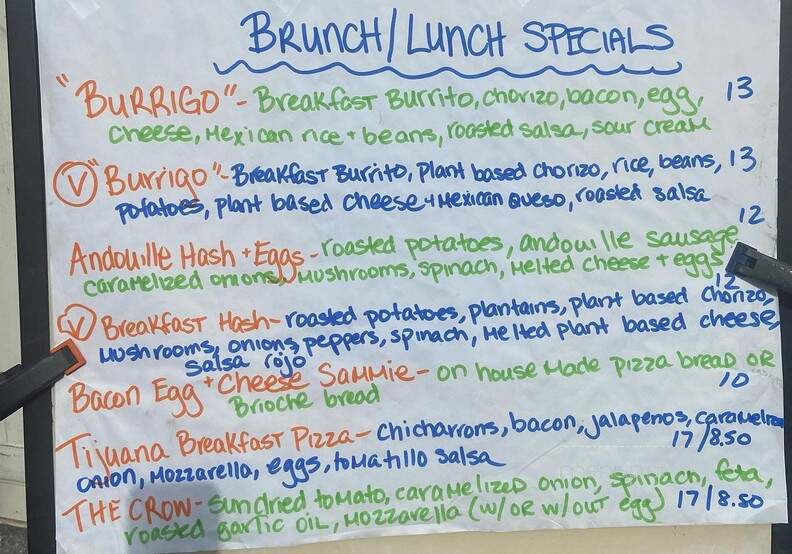 BRUNCH/LUNCH SPECIALS
"BURRIGO"- Breakfast Burrito, chorizo, bacon, egg, 13
cheese, Mexican rice + beans, roasted salsa, sour cream
V "Burrigo"- Breakfast Burrito, Plant based chorizo, rice, beans, 13
potatoes, plant based cheese + Mexican Queso, roasted salsa
12
Andouille Hash + Eggs - roasted potatoes, andouille sausage
caramelized onions, mushrooms, spinach, melted cheese + eggs
12
V Breakfast Hash- roasted potatoes, plantains, plant based chorizo,
mushrooms, onions, peppers, spinach, melted plant based cheese,
salsa rojo
Bacon Egg + Cheese Sammie - on house made pizza bread OR
Brioche bread 10
Tijuana Breakfast Pizza - chicharrons, bacon, jalapenos,
onion, mozzarella, eggs, tomatillo salsa 17/8.50
THE CROW- sundried tomato, caramelized onion, spinach, feta,
roasted garlic oil, mozzarella (w/ OR w/out egg) 17/8.50